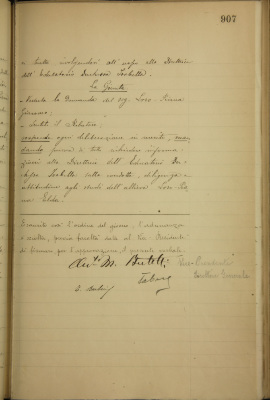 907
a scelta rivolgendosi all'uopo alla Direttrice
dell'Educatorio Duchessa Isabella.
La Giunta
- Veduta la domanda del sig. Loro-Piana
Giacomo;
- Sentito il Relatore;
sospende ogni deliberazione in merito, man
dando perciò di tosto richiedere informa
zioni alla Direttrice dell'Educatorio Du
chessa Isabella sulla condotta, diligenza e
attitudini agli studi dell'allieva Loro Pia
na Elda.
Esaurito così l'ordine del giorno, l'adunanza
è sciolta, previa facoltà data al Vice Presidente
di firmare per l'approvazione il presente verbale.
Vice-Presidente
Direttore Generale